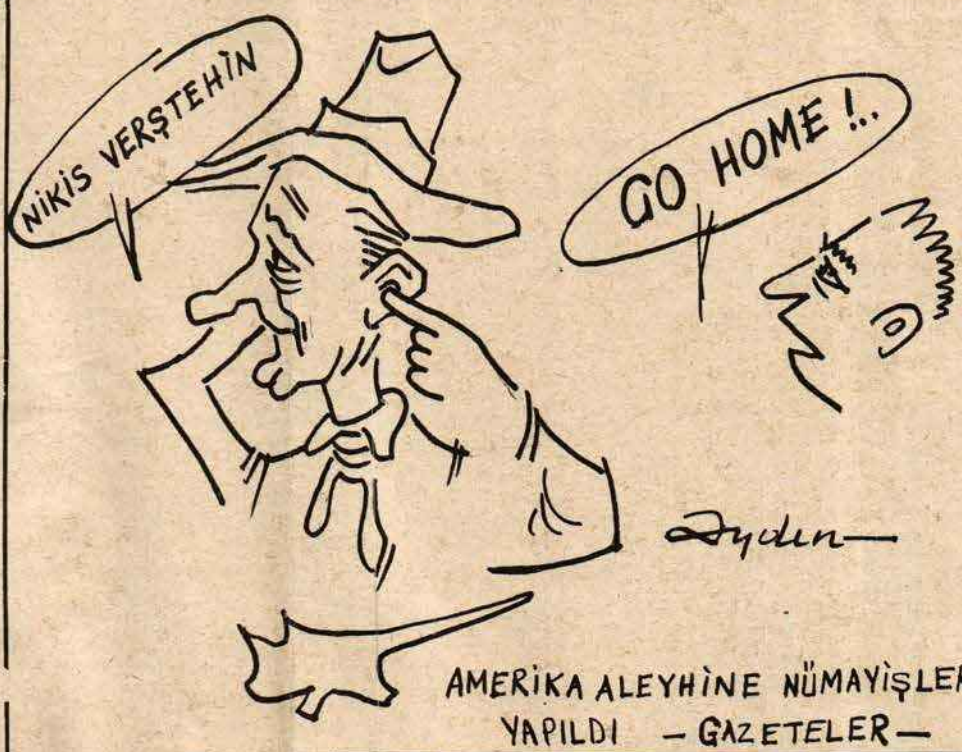 NİKİS VERŞTEHİN
GO HOME !..
Aydın
AMERİKA ALEYHİNE NÜMAYİŞLER
YAPILDI – GAZETELER –